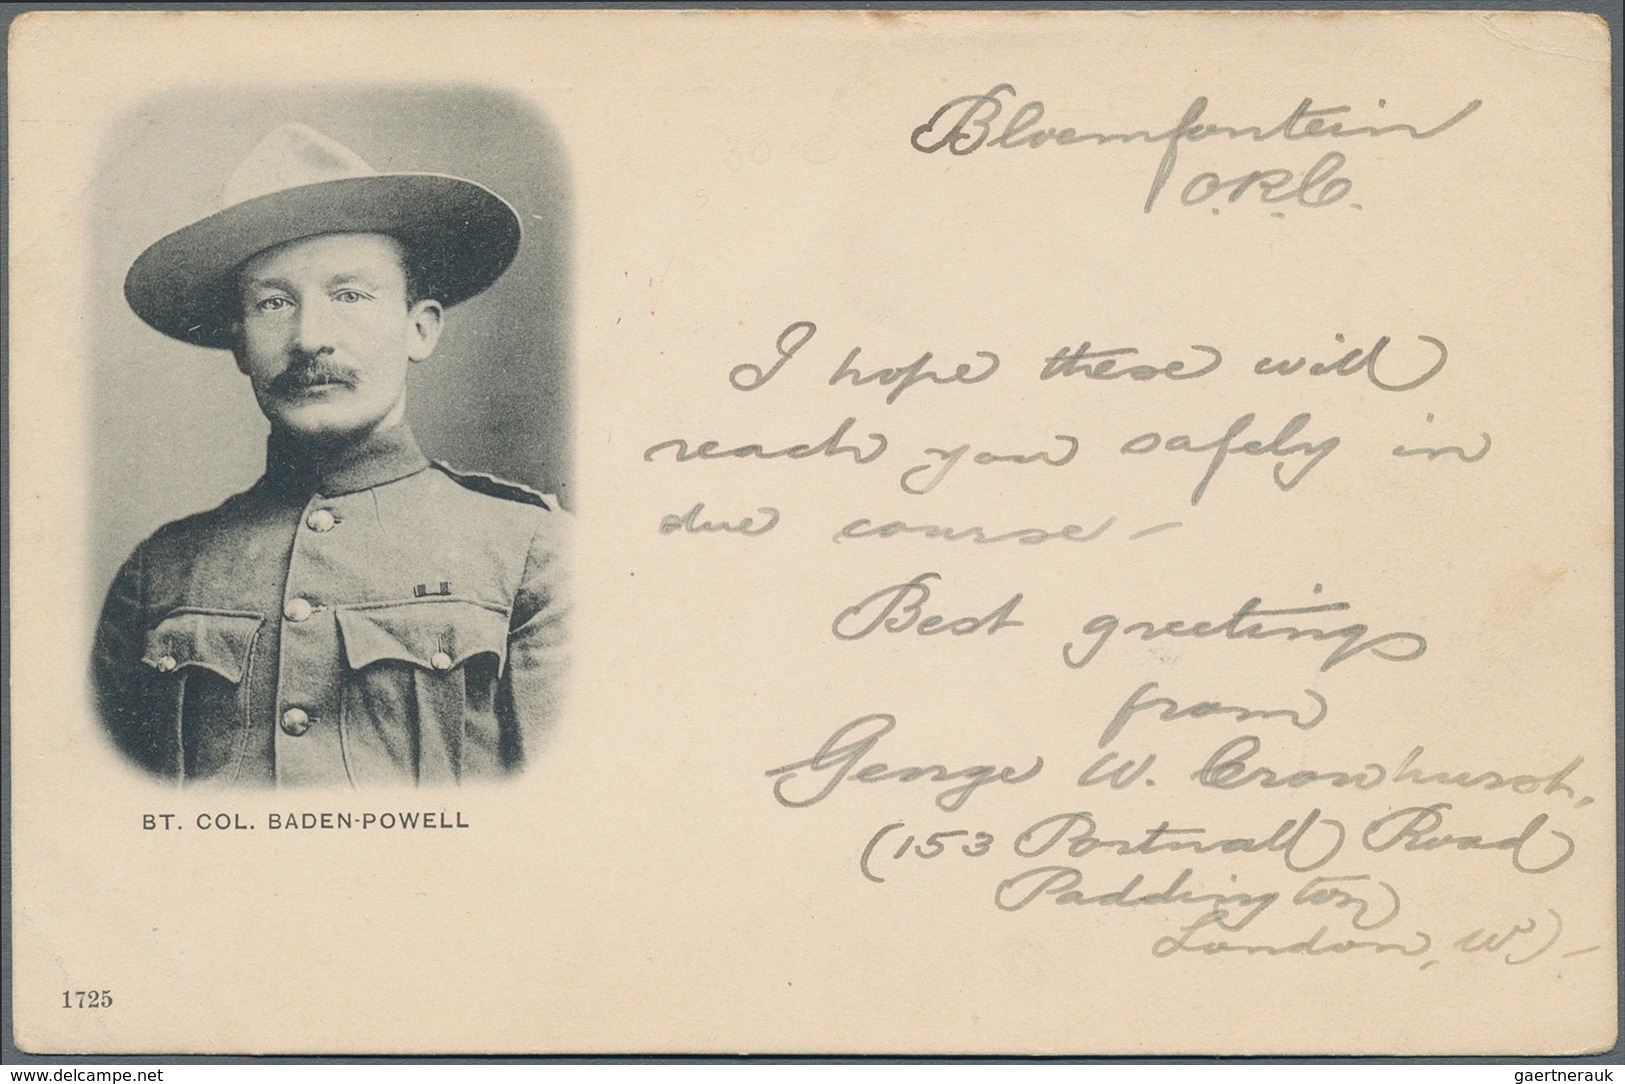 Bloemfontein
O.R.C.
I hope these will
reach you safely in
due course –
Best greetings
from
George W. Cronhurst,
(153 Portnall Road
Paddington
London, W.) –
BT. COL. BADEN-POWELL
1725
www.delcampe.net
gaertnerauk